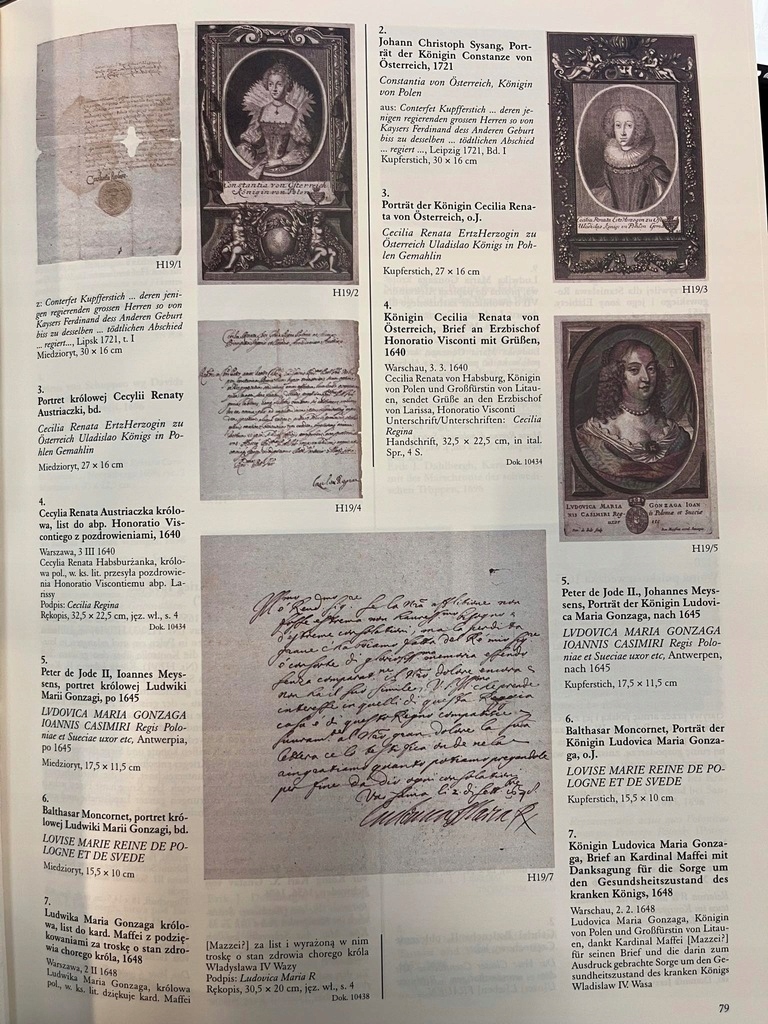 H19/1
z: Conterfet Kupfferstich ... deren jeni-
gen regierenden grossen Herren so von
Kaysers Ferdinand dess Anderen Geburt
biss zu desselben ... tödtlichen Abschied
... regiert..., Lipsk 1721, t. I
Miedzioryt, 30 × 16 cm
3.
Portret królowej Cecylii Renaty
Austriaczki, bd.
Cecilia Renata ErtzHerzogin zu
Österreich Uladislao Königs in Poh-
len Gemahlin
Miedzioryt, 27 × 16 cm
4.
Cecylia Renata Austriaczka królo-
wa, list do abp. Honoratio Vis-
contiego z pozdrowieniami, 1640
Warszawa, 3 III 1640
Cecylia Renata Habsburżanka, królo-
wa pol., w. ks. lit. przesyła pozdrowie-
nia Honoratio Viscontiemu abp. La-
rissy
Podpis: Cecilia Regina
Rękopis, 32,5 × 22,5 cm, jęz. wł., s. 4
Dok. 10434
5.
Peter de Jode II, Ioannes Meys-
sens, portret królowej Ludwiki
Marii Gonzagi, po 1645
LVDOVICA MARIA GONZAGA
IOANNIS CASIMIRI Regis Polo-
niae et Sueciae uxor etc, Antwerpia,
po 1645
Miedzioryt, 17,5 × 11,5 cm
6.
Balthasar Moncornet, portret kró-
lowej Ludwiki Marii Gonzagi, bd.
LOVISE MARIE REINE DE PO-
LOGNE ET DE SVEDE
Miedzioryt, 15,5 × 10 cm
7.
Ludwika Maria Gonzaga królo-
wa, list do kard. Maffei z podzię-
kowaniami za troskę o stan zdro-
wia chorego króla, 1648
Warszawa, 2 II 1648
Ludwika Maria Gonzaga, królowa
pol., w. ks. lit. dziękuje kard. Maffei
Constantia von Österreich
Königin von Polen
H19/2
H19/4
H19/7
[Mazzei?] za list i wyrażoną w nim
troskę o stan zdrowia chorego króla
Władysława IV Wazy
Podpis: Ludovica Maria R
Rękopis, 30,5 × 20 cm, jęz. wł., s. 4
Dok. 10438
2.
Johann Christoph Sysang, Port-
rät der Königin Constanze von
Österreich, 1721
Constantia von Österreich, Königin
von Polen
aus: Conterfet Kupfferstich ... deren je-
nigen regierenden grossen Herren so von
Kaysers Ferdinand des Anderen Geburt
biss zu desselben ... tödtlichen Abschied
... regiert ..., Leipzig 1721, Bd. I
Kupferstich, 30 × 16 cm
3.
Porträt der Königin Cecilia Rena-
ta von Österreich, o.J.
Cecilia Renata ErtzHerzogin zu
Österreich Uladislao Königs in Poh-
len Gemahlin
Kupferstich, 27 × 16 cm
4.
Königin Cecilia Renata von
Österreich, Brief an Erzbischof
Honoratio Visconti mit Grüßen,
1640
Warschau, 3. 3. 1640
Cecilia Renata von Habsburg, Königin
von Polen und Großfürstin von Litau-
en, sendet Grüße an den Erzbischof
von Larissa, Honoratio Visconti
Unterschrift/Unterschriften: Cecilia
Regina
Handschrift, 32,5 × 22,5 cm, in ital.
Spr., 4 S.
Dok. 10434
Cecilia Renata ErtzHerzogin zu
Uladislao Königs in Pohlen Gemahlin
H19/3
LVDOVICA MARIA GONZAGA IOAN
NIS CASIMIRI Reg is Poloniae et Sueciae
uxor etc
H19/5
5.
Peter de Jode II., Johannes Meys-
sens, Porträt der Königin Ludovi-
ca Maria Gonzaga, nach 1645
LVDOVICA MARIA GONZAGA
IOANNIS CASIMIRI Regis Polo-
niae et Sueciae uxor etc, Antwerpen,
nach 1645
Kupferstich, 17,5 × 11,5 cm
6.
Balthasar Moncornet, Porträt der
Königin Ludovica Maria Gonza-
ga, o.J.
LOVISE MARIE REINE DE PO-
LOGNE ET DE SVEDE
Kupferstich, 15,5 × 10 cm
7.
Königin Ludovica Maria Gonza-
ga, Brief an Kardinal Maffei mit
Danksagung für die Sorge um
den Gesundsheitszustand des
kranken Königs, 1648
Warschau, 2. 2. 1648
Ludovica Maria Gonzaga, Königin
von Polen und Großfürstin von Litau-
en, dankt Kardinal Maffei [Mazzei?]
für seinen Brief und die darin zum
Ausdruck gebrachte Sorge um den Ge-
sundheitszustand des kranken Königs
Wladislaw IV. Wasa
79